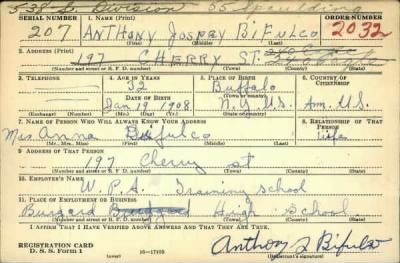 538 S. Division 55 Spaulding
SERIAL NUMBER 1. NAME (Print) ORDER NUMBER
207 ANTHONY JOSPEY BIFULCO 2032
(First) (Middle) (Last)
2. ADDRESS (Print)
197 CHERRY ST.
(Number and street or R. F. D. number) (Town) (County) (State)
3. TELEPHONE 4. AGE IN YEARS 5. PLACE OF BIRTH 6. COUNTRY OF CITIZENSHIP
32 Buffalo
DATE OF BIRTH (Town or county)
Jan 19 1908 N.Y. U.S. Am. U.S.
(Exchange) (Number) (Mo.) (Day) (Yr.) (State or country)
7. NAME OF PERSON WHO WILL ALWAYS KNOW YOUR ADDRESS 8. RELATIONSHIP OF THAT PERSON
Mrs. Anna Bifulco wife
(Mr., Mrs., Miss) (First) (Middle) (Last)
9. ADDRESS OF THAT PERSON
197 Cherry st
(Number and street or R. F. D. number) (Town) (County) (State)
10. EMPLOYER'S NAME
W. P. A. Training School
11. PLACE OF EMPLOYMENT OR BUSINESS
Burgard High School
(Number and street or R. F. D. number) (Town) (County) (State)
I AFFIRM THAT I HAVE VERIFIED ABOVE ANSWERS AND THAT THEY ARE TRUE.
REGISTRATION CARD
D. S. S. Form 1 16—17105 Anthony J Bifulco
(Registrant's signature)